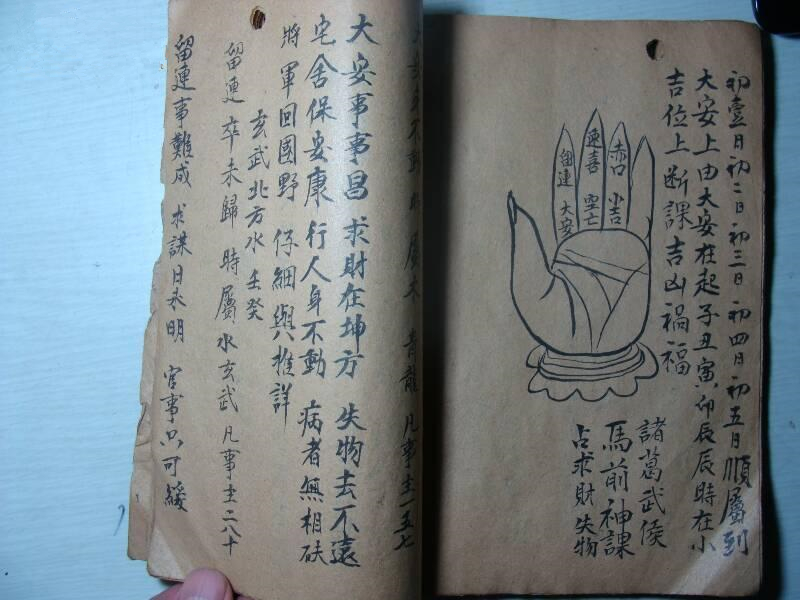 初壹日初二日初三日初四日初五日順屬到
大安上由大安在起子丑寅卯辰辰時在小
吉位上断課吉凶禍福
赤口 小吉
速喜 空亡
留連 大安
諸葛武侯
馬前神課
占求財失物
不動 屬木 青龍 凡事主一五七
大安事事昌 求財在坤方 失物去不遠
宅舍保安康 行人身不動 病者無相砆
將軍回國野 仔細與推詳
玄武北方水 壬癸
留連 卒未歸 時屬水玄武 凡事主二八十
留連事難成 求謀日永明 官事只可緩